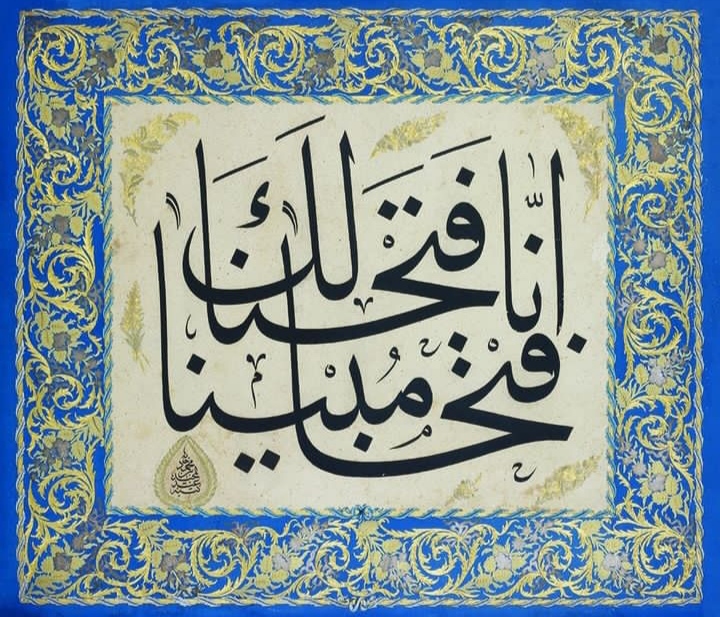 انّا فتحنا لك
فتحا مبينا
كتبه